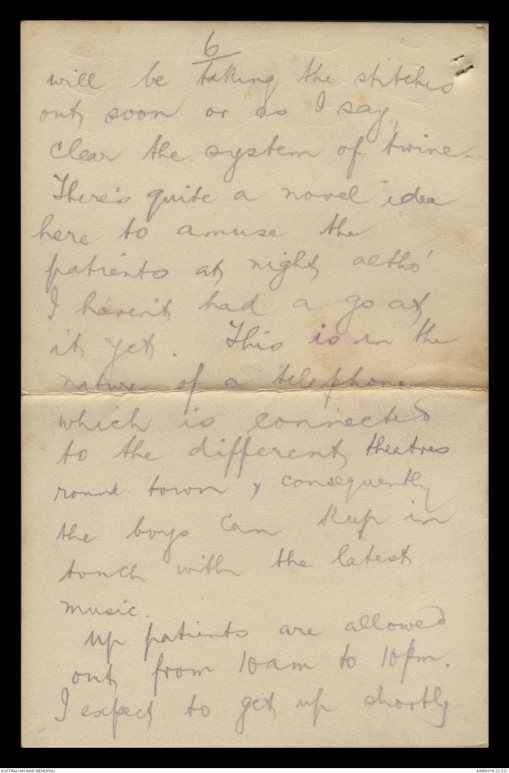 6
will be taking the stitches
out soon or as I say,
clear the system of twine.
There's quite a novel idea
here to amuse the
patients at night altho'
I haven't had a go at
it yet. This is in the
nature of a telephone
which is connected
to the different theatres
round town & consequently
the boys can keep in
touch with the latest
music.
Up patients are allowed
out from 10am to 10pm.
I expect to get up shortly
AUSTRALIAN WAR MEMORIAL